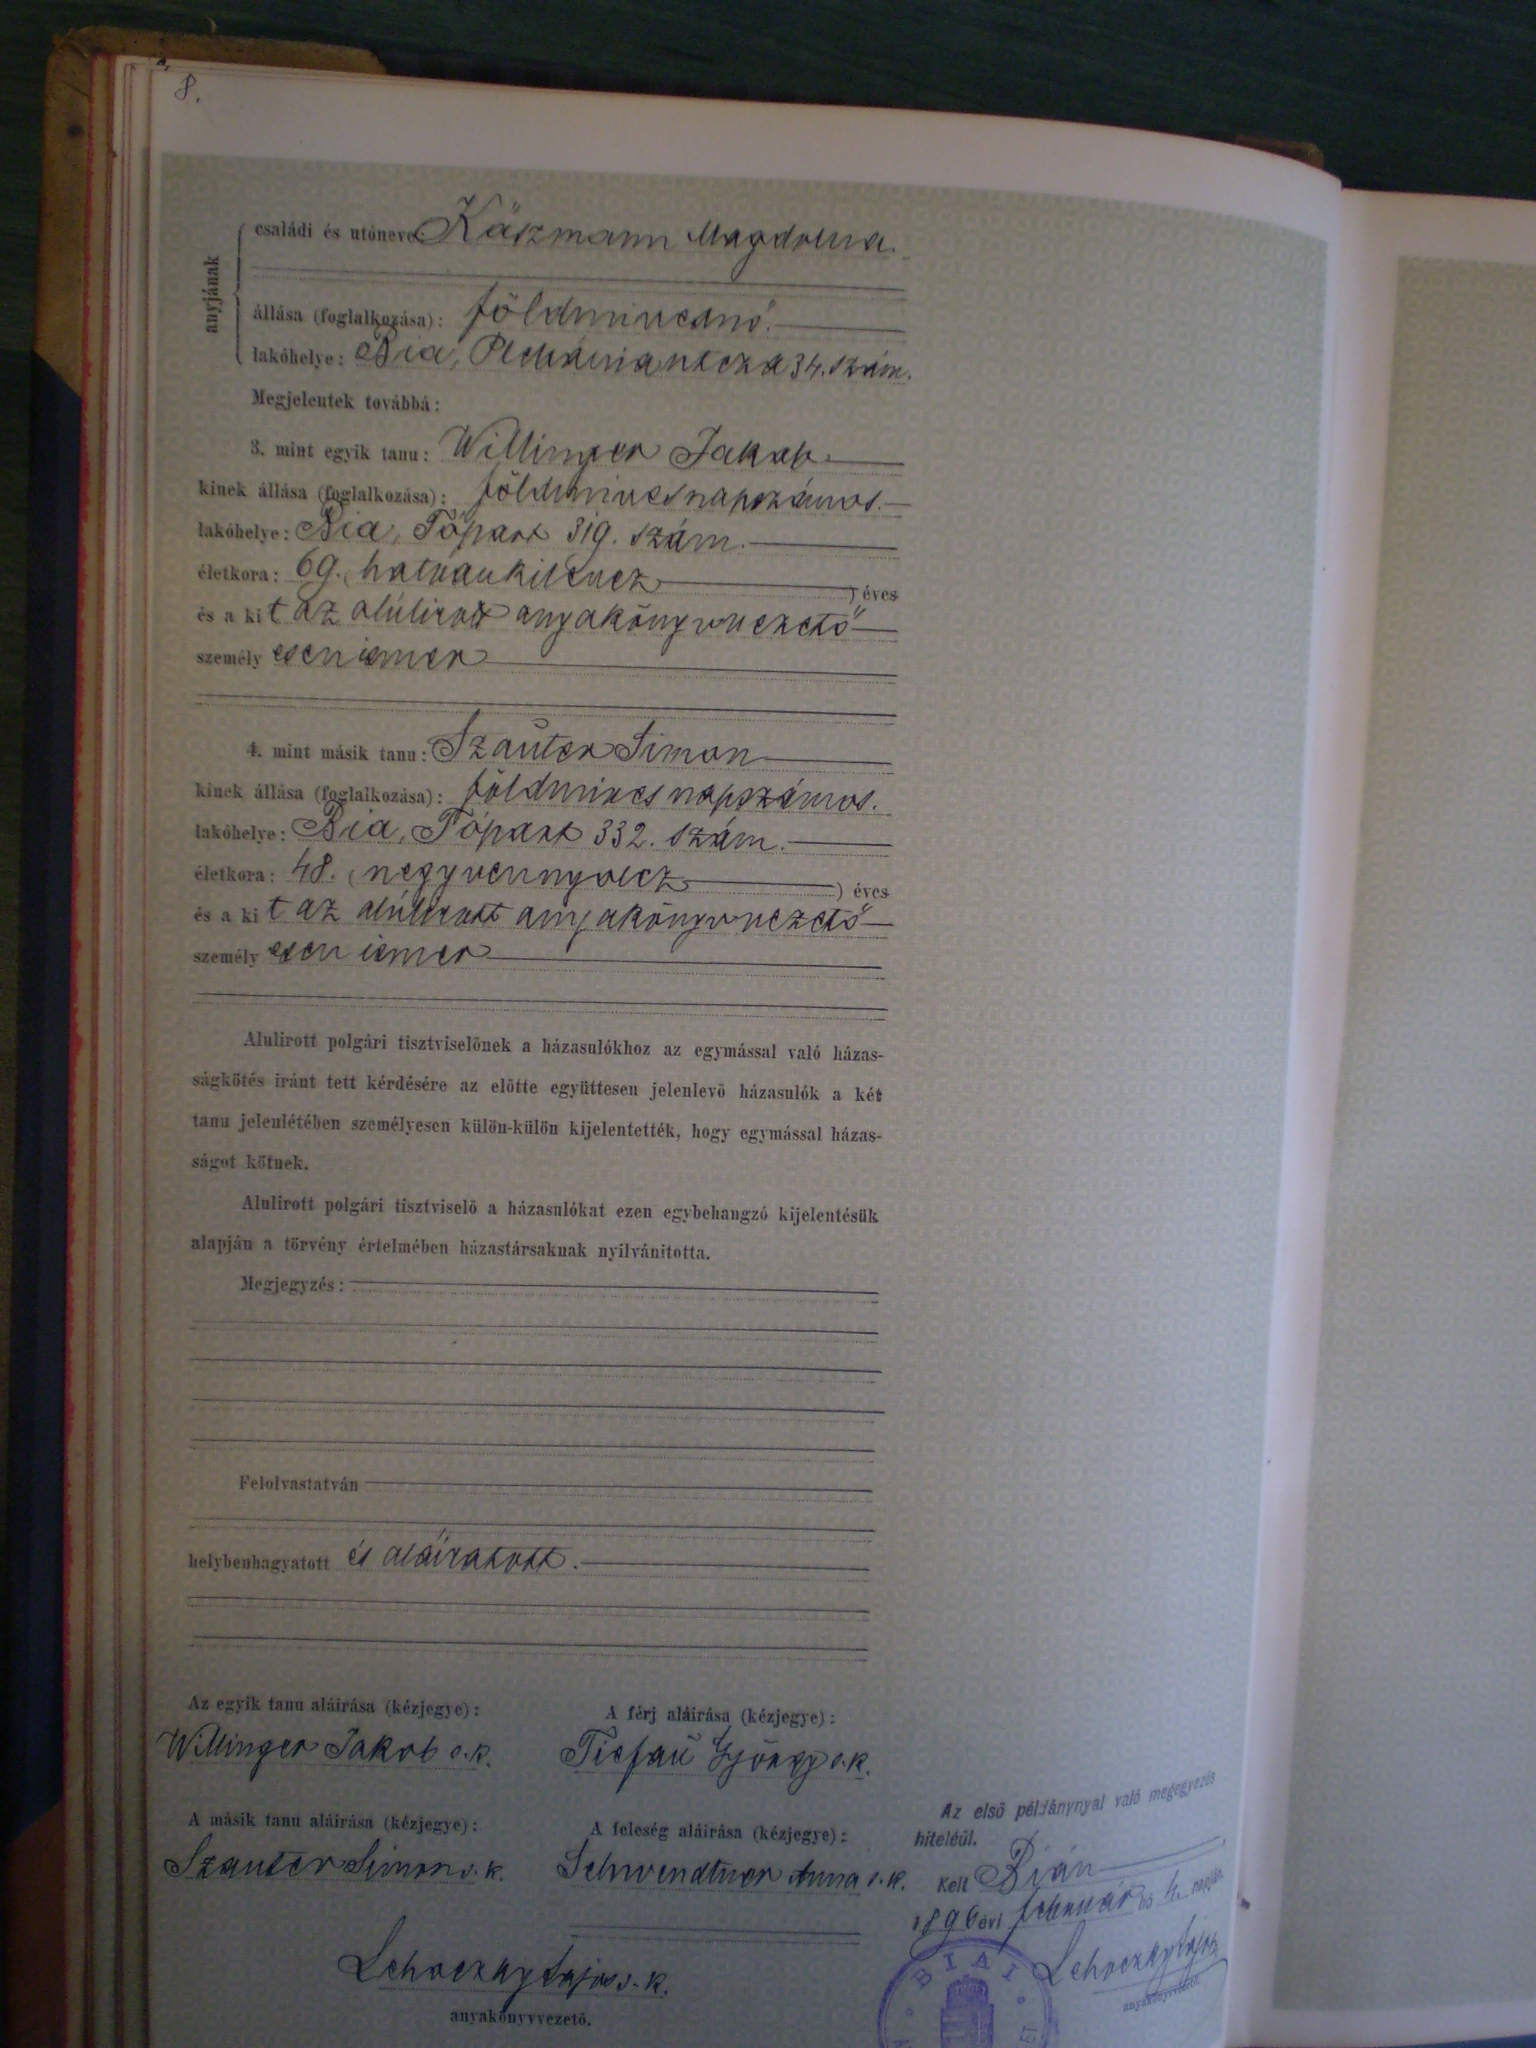 8.
anyjának
családi és utóneve: Käszmann Magdolna.
állása (foglalkozása): földmivesnő.
lakóhelye: Bia, Plébánia utcza 34. szám.
Megjelentek továbbá:
3. mint egyik tanu: Willinger Jakab
kinek állása (foglalkozása): földmives napszámos.
lakóhelye: Bia, Tópart 319. szám.
életkora: 69. (hatvankilencz) éves
és a kit az alúlirott anyakönyvvezető
személyesen ismer
4. mint másik tanu: Szauter Simon
kinek állása (foglalkozása): földmives napszámos.
lakóhelye: Bia, Tópart 332. szám.
életkora: 48. (negyvennyolcz) éves
és a kit az alúlirott anyakönyvvezető
személyesen ismer
Alulirott polgári tisztviselőnek a házasulókhoz az egymással való házas-
ságkötés iránt tett kérdésére az előtte együttesen jelenlevő házasulók a két
tanu jelenlétében személyesen külön-külön kijelentették, hogy egymással házas-
ságot kötnek.
Alulirott polgári tisztviselő a házasulókat ezen egybehangzó kijelentésük
alapján a törvény értelmében házastársaknak nyilvánitotta.
Megjegyzés:
Felolvastatván
helybenhagyatott és aláiratott.
Az egyik tanu aláirása (kézjegye): A férj aláirása (kézjegye):
Willinger Jakab s. k. Tiefau György s. k.
A másik tanu aláirása (kézjegye): A feleség aláirása (kézjegye):
Szauter Simon s. k. Schwendtner Anna s. k.
Lehoczky Lajos s. k.
anyakönyvvezető.
Az első példánynyal való megegyezés
hiteléül.
Kelt Bián
1896 évi február hó 4. napján
Lehoczky Lajos
anyakönyvvezető.
BIAI